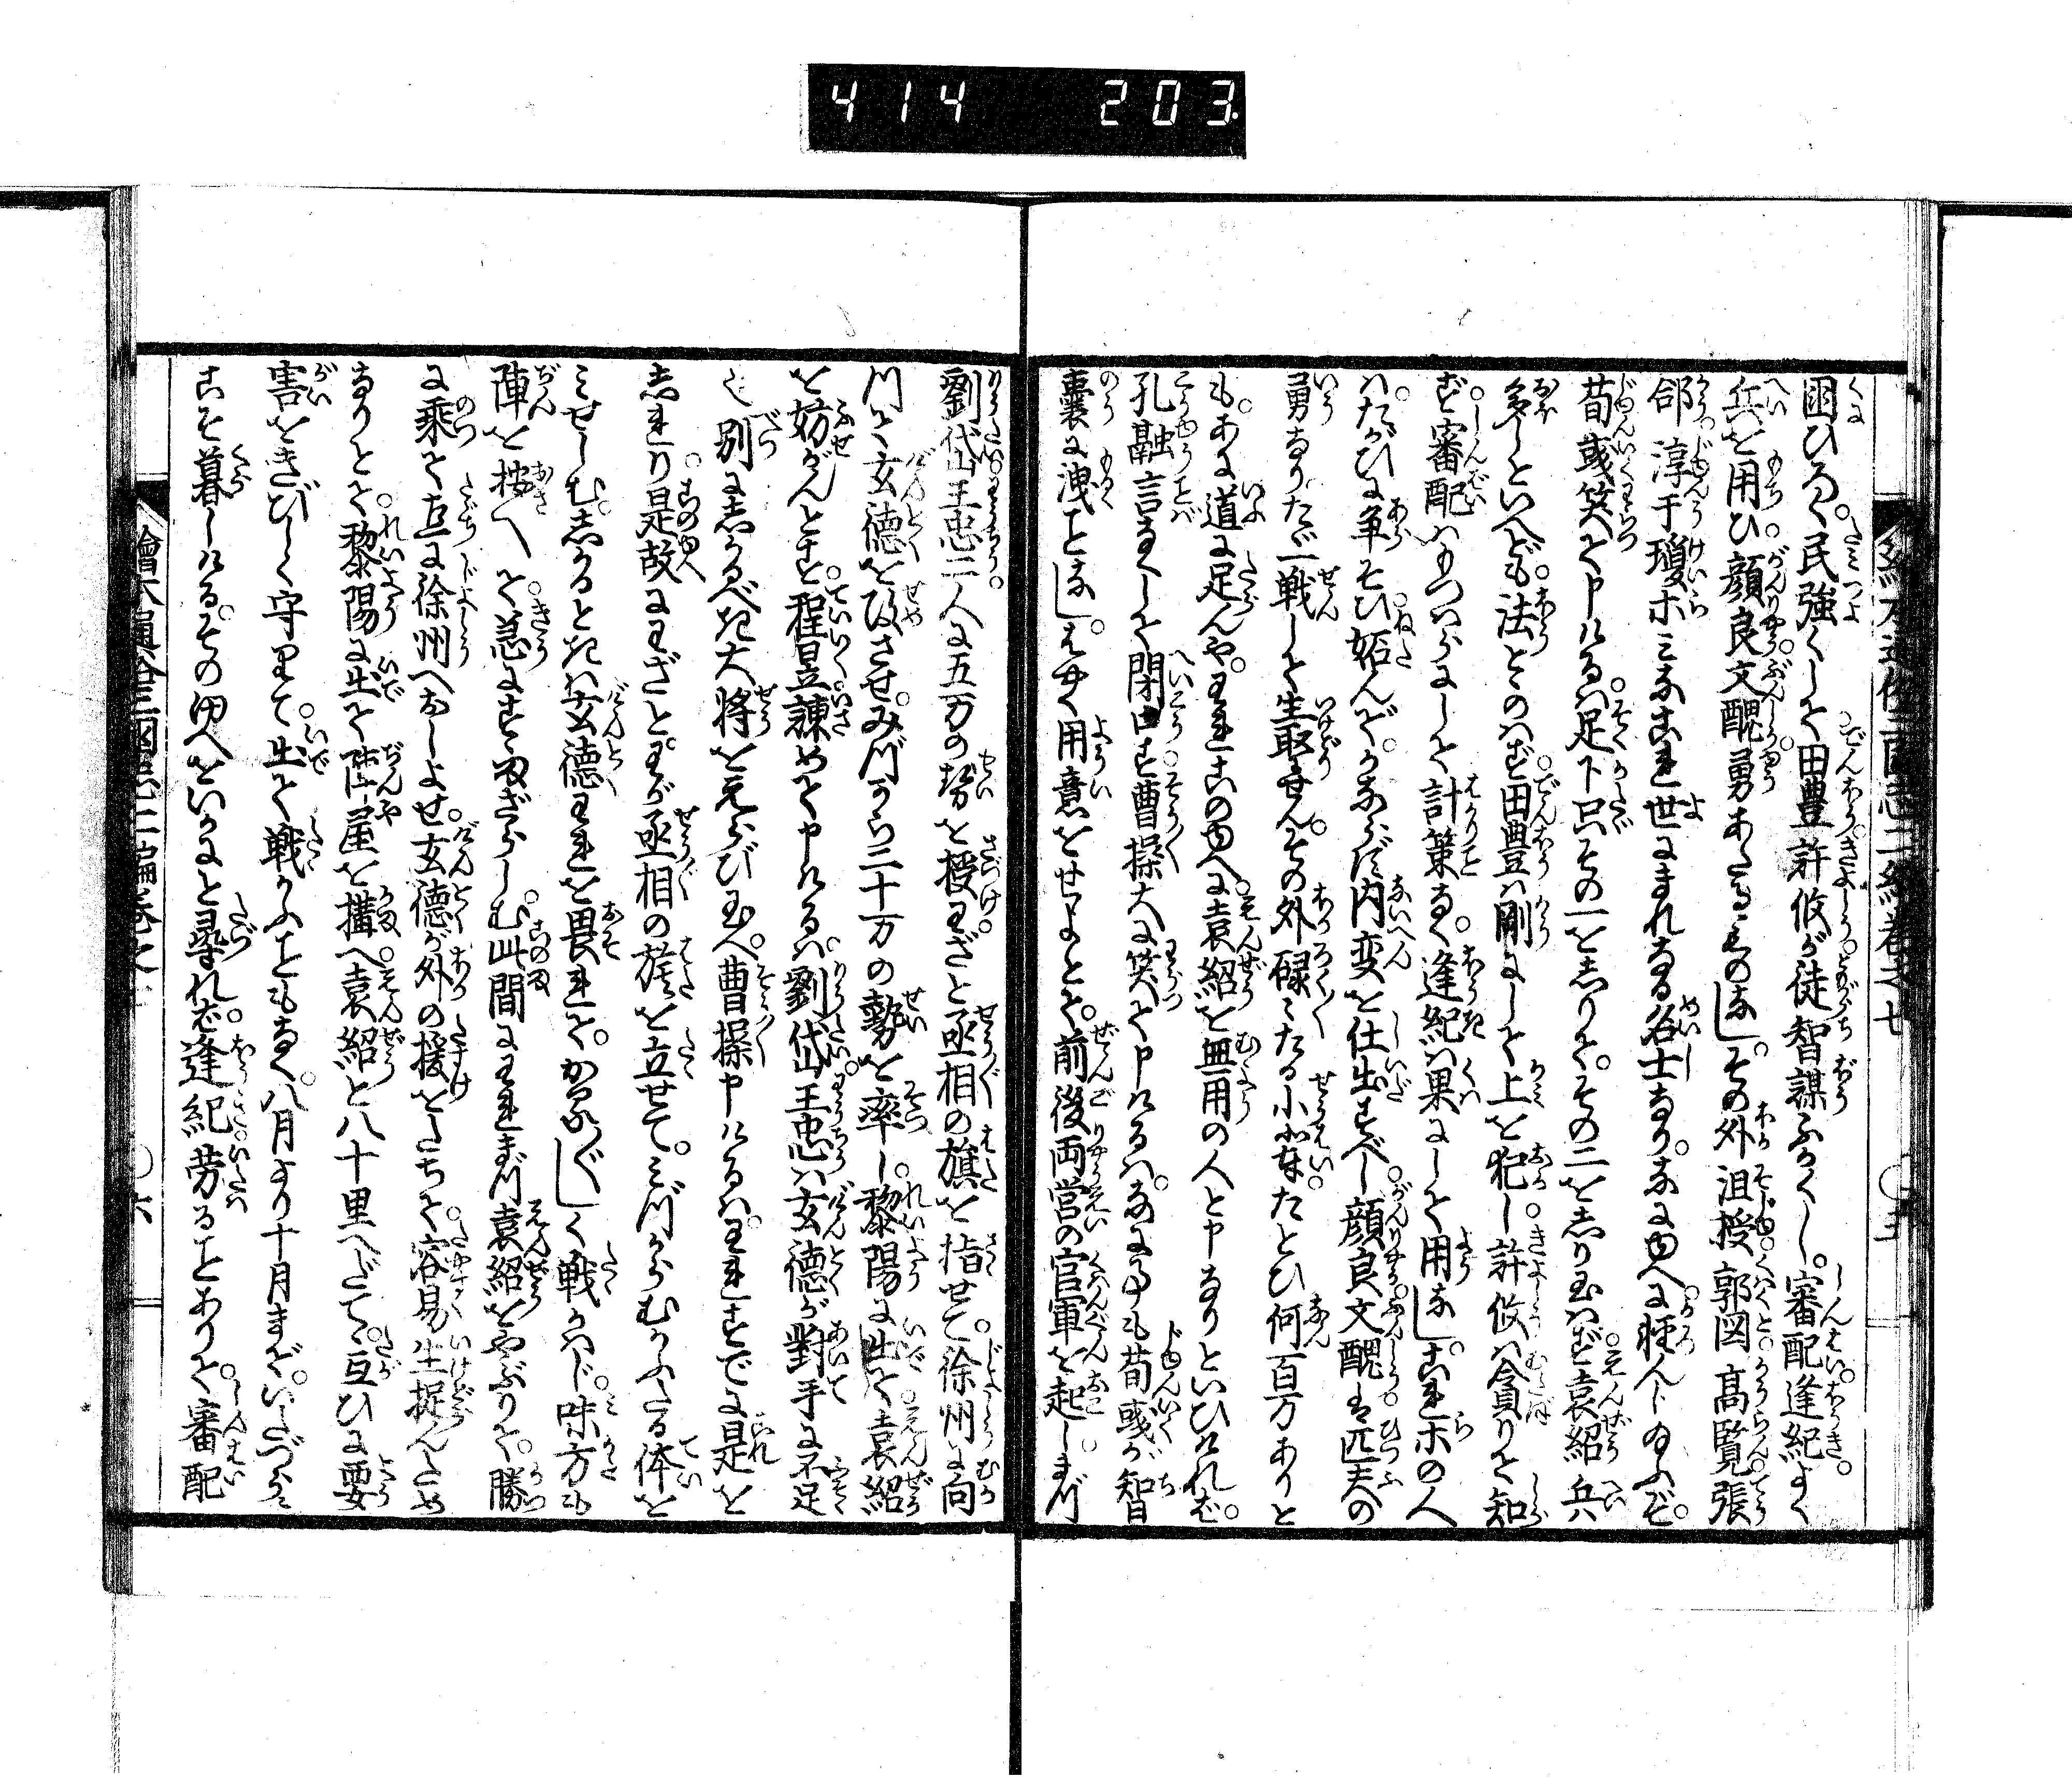 414 203
国ひろく。民強くして田豊許攸が徒智謀ふかくし。審配逢紀よく
兵を用ひ。顔良文醜勇あたるものなし。その外沮授郭図高覧張
郃淳于瓊ホみなこれ世にまれなる名士なり。なにゆへに軽んじ給ふぞ。
荀彧笑て申けるは。足下只その一をしりて。その二をしり玉はず。袁紹兵
多しといへども。法とゝのはず。田豊は剛にして上を犯し。許攸は貪りて知
ず。審配はもつはらにして計策なく。逢紀は果にして用なし。これホの人
はたがひに争そひ妬んで。かならず内変を仕出すべし。顔良文醜は匹夫の
勇なり。たゞ一戦して生取せん。その外碌々たる小輩。たとひ何百万ありと
も。あに道に足んや。われこのゆへに。袁紹を無用の人と申なりといひければ。
孔融言なくして閉口す。曹操大に笑て申けるは。なに事も荀彧が智
嚢に洩ことなし。はやく用意をせよとて。前後両営の官軍を起し。まづ
劉岱。王忠二人に五万の勢を授。わざと丞相の旗を指せて。徐州に向
川て玄徳を攻させ。みづから二十万の勢を率し。黎陽に出て袁紹
を妨がんとす。程昱諫めて申けるは。劉岱。王忠は玄徳が對手に不足
し。別にしかるべき大将をえらび玉へ。曹操申けるは。われすでに是を
しれり。是故にわざと。わが丞相の旗を立せて。みづからむかふたる体を
みせしむ。しかるときは玄徳われを畏れて。かろ〴〵しく戦かはじ。味方も
陣を按へて。急にすゝまざらしむ。此間にわれまづ袁紹をやぶりて。勝
に乗て直に徐州へおしよせ。玄徳が外の援をたちて。容易生捉んため
なりとて。黎陽に出て陣屋を搆へ。袁紹と八十里へだてゝ。互ひに要
害をきびしく守りて。出て戦かふこともなく。八月より十月まで。いたづらに
こそ暮しける。そのゆへをいかにと尋れば。逢紀労ることありて。審配